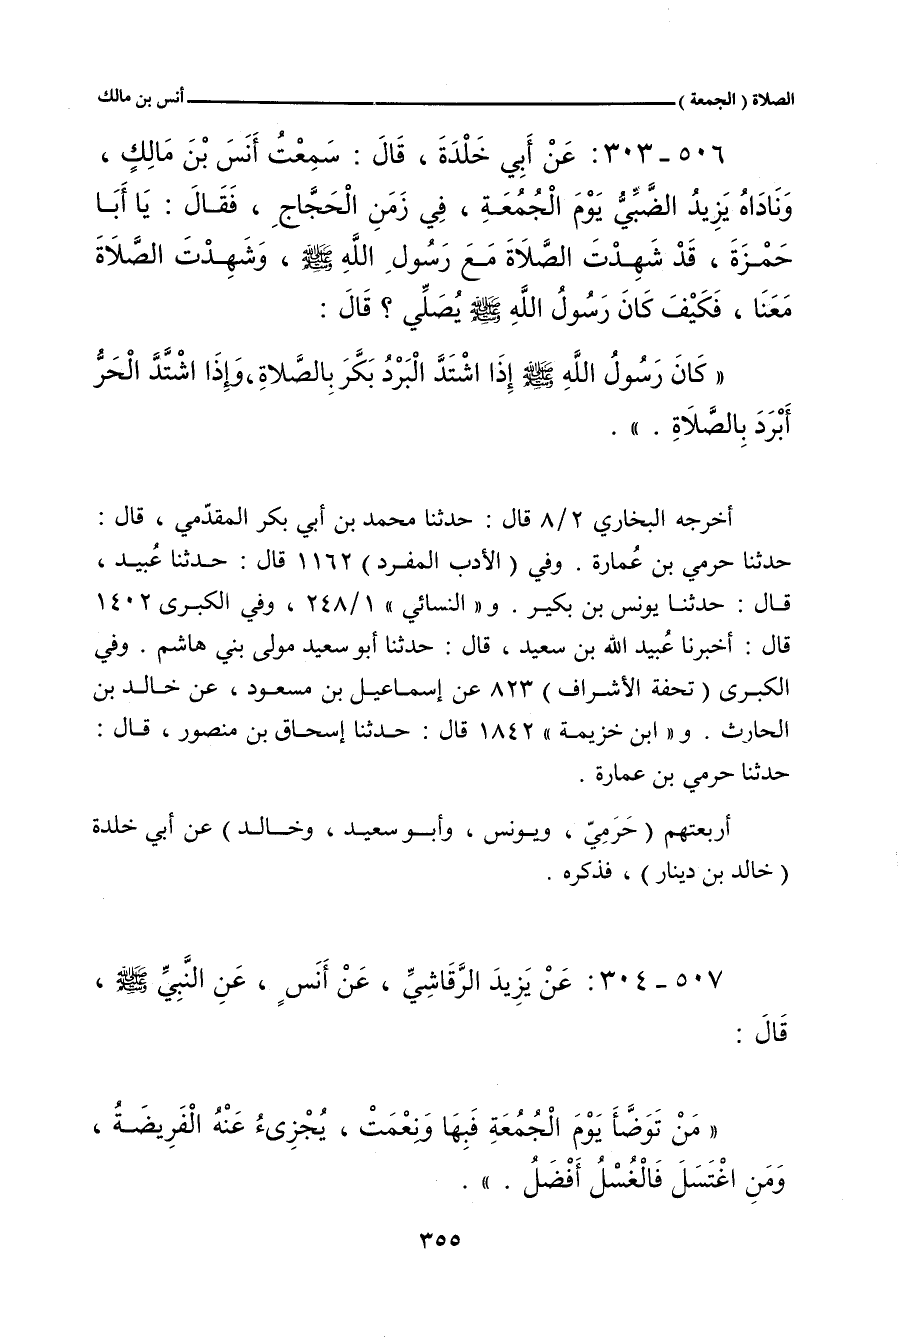 الصلاة ( الجمعة ) ــــــــــــــــــــ أنس بن مالك
٥٠٦ ـ ٣٠٣: عَنْ أَبِي خَلْدَةَ ، قَالَ : سَمِعْتُ أَنَسَ بْنَ مَالِكٍ ،
وَنَادَاهُ يَزِيدُ الضَّبِّيُّ يَوْمَ الْجُمُعَةِ ، فِي زَمَنِ الْحَجَّاجِ ، فَقَالَ : يَا أَبَا
حَمْزَةَ ، قَدْ شَهِدْتَ الصَّلَاةَ مَعَ رَسُولِ اللَّهِ ﷺ ، وَشَهِدْتَ الصَّلَاةَ
مَعَنَا ، فَكَيْفَ كَانَ رَسُولُ اللَّهِ ﷺ يُصَلِّي ؟ قَالَ :
« كَانَ رَسُولُ اللَّهِ ﷺ إِذَا اشْتَدَّ الْبَرْدُ بَكَّرَ بِالصَّلَاةِ، وَإِذَا اشْتَدَّ الْحَرُّ
أَبْرَدَ بِالصَّلَاةِ . » .
أخرجه البخاري ٨/٢ قال : حدثنا محمد بن أبي بكر المقدّمي ، قال :
حدثنا حرمي بن عُمارة . وفي ( الأدب المفرد ) ١١٦٢ قال : حدثنا عُبيد ،
قال : حدثنا يونس بن بكير . و« النسائي » ٢٤٨/١ ، وفي الكبرى ١٤٠٢
قال : أخبرنا عُبيد الله بن سعيد ، قال : حدثنا أبو سعيد مولى بني هاشم . وفي
الكبرى ( تحفة الأشراف ) ٨٢٣ عن إسماعيل بن مسعود ، عن خالد بن
الحارث . و« ابن خزيمة » ١٨٤٢ قال : حدثنا إسحاق بن منصور ، قال :
حدثنا حرمي بن عمارة .
أربعتهم ( حَرَمِيّ ، ويونس ، وأبو سعيد ، وخالد ) عن أبي خلدة
( خالد بن دينار ) ، فذكره .
٥٠٧ ـ ٣٠٤: عَنْ يَزِيدَ الرَّقَاشِيِّ ، عَنْ أَنَسٍ ، عَنِ النَّبِيِّ ﷺ ،
قَالَ :
« مَنْ تَوَضَّأَ يَوْمَ الْجُمُعَةِ فَبِهَا وَنِعْمَتْ ، يُجْزِىءُ عَنْهُ الْفَرِيضَةُ ،
وَمَنِ اغْتَسَلَ فَالْغُسْلُ أَفْضَلُ . » .
٣٥٥